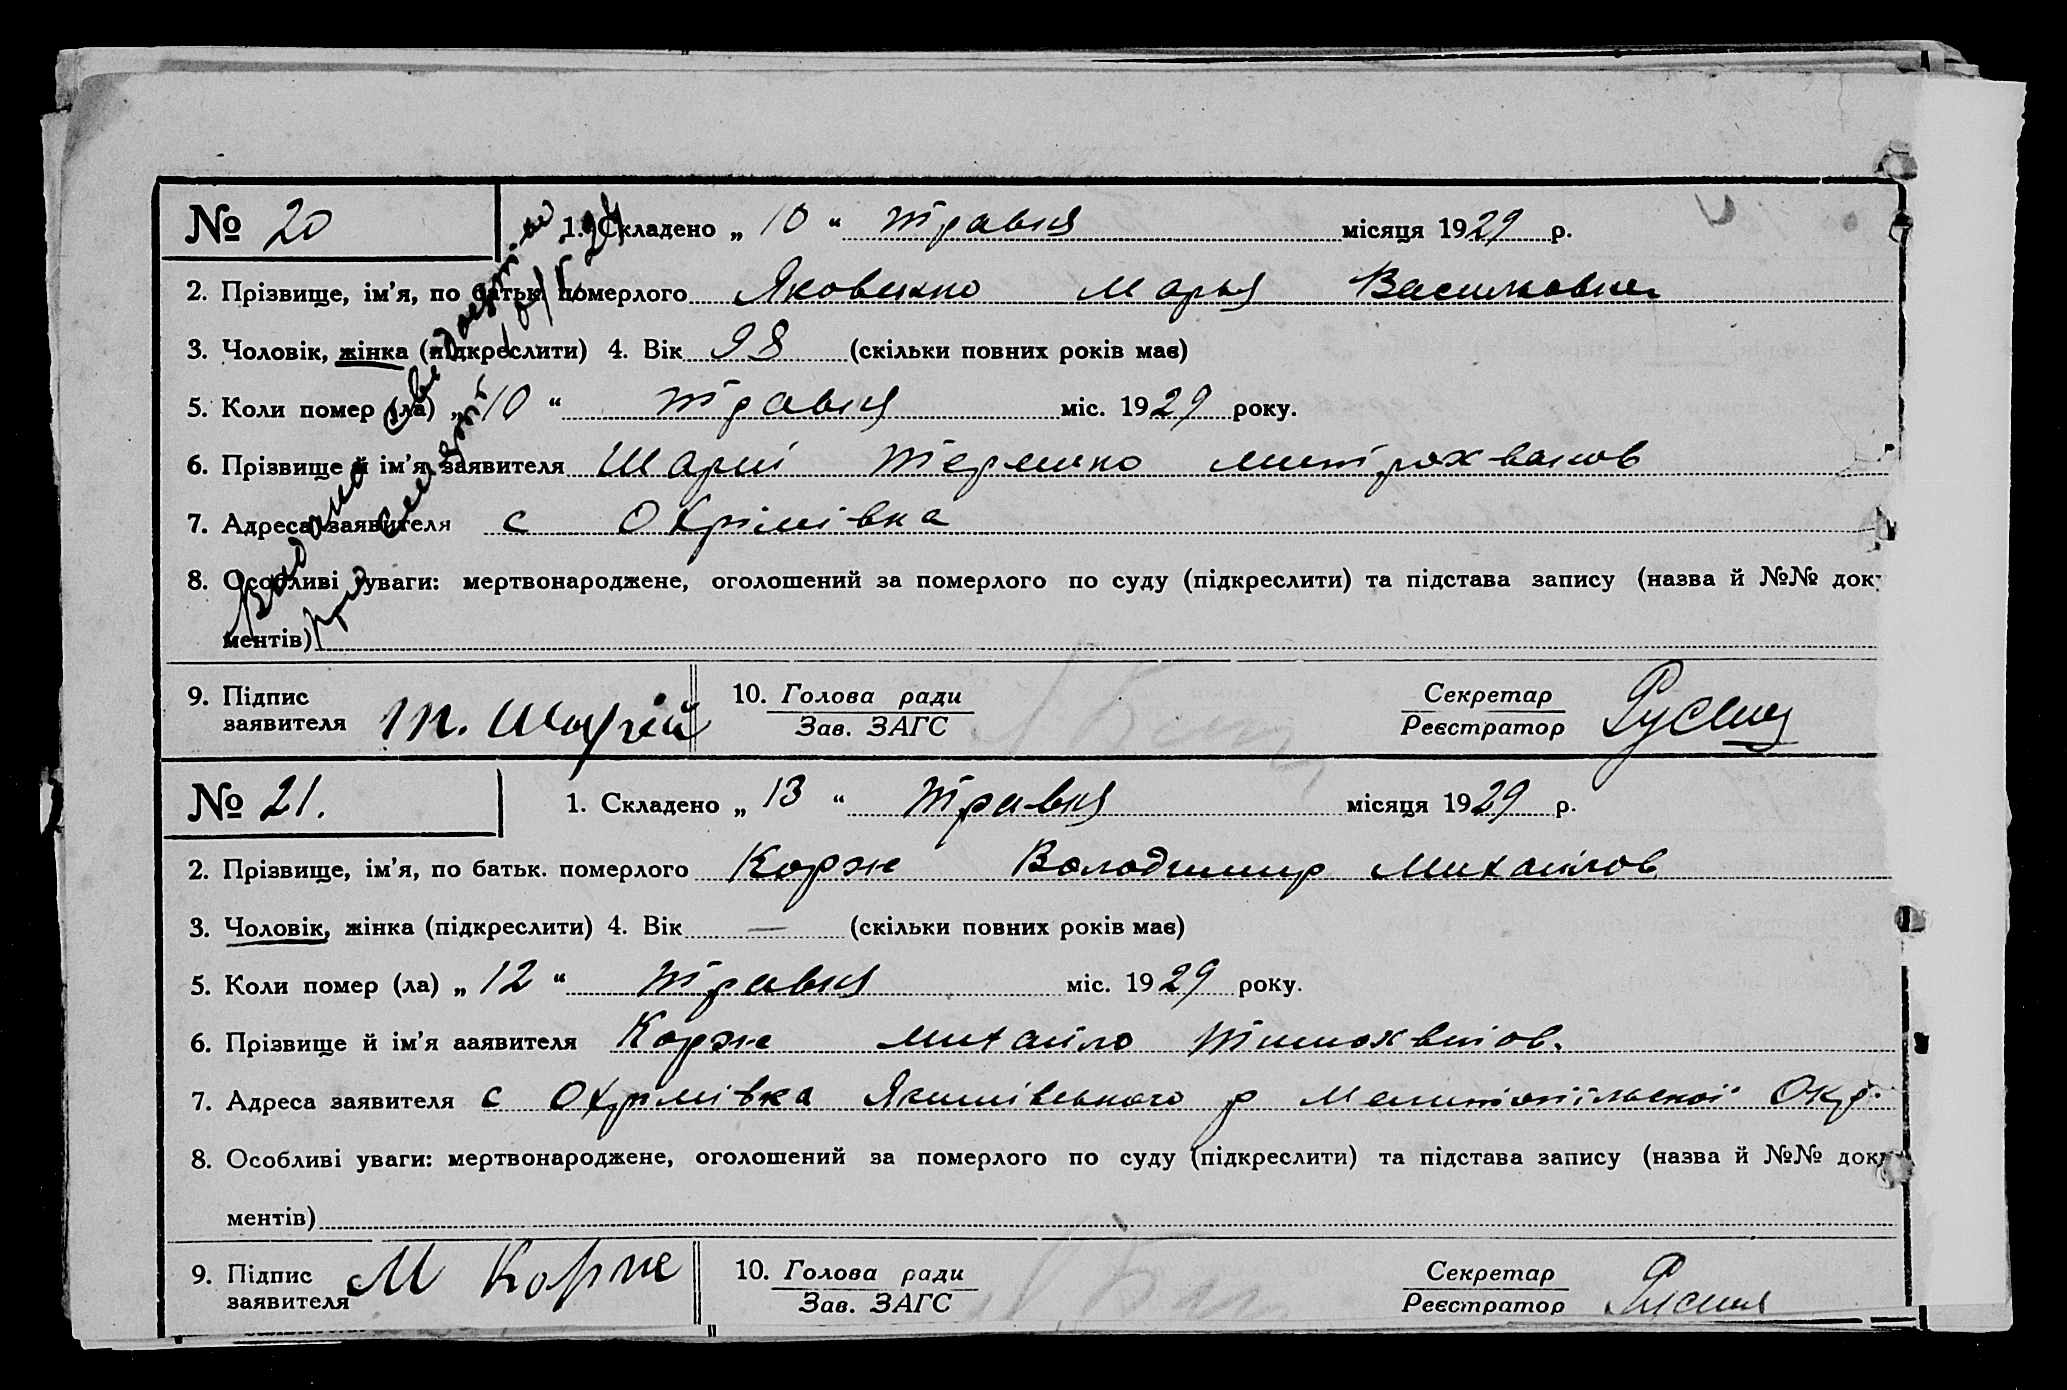 № 20 1. Складено „ 10 “ травня місяця 1929 р.
2. Прізвище, ім’я, по батьк. померлого Яковенко Марья Василовна
3. Чоловік, жінка (підкреслити) 4. Вік 98 (скільки повних років має)
5. Коли помер (ла) „ 10 “ травня міс. 1929 року.
6. Прізвище й ім’я заявителя Шарій Терешко митрохванов
7. Адреса заявителя с Охрімівка
8. Особливі уваги: мертвонароджене, оголошений за померлого по суду (підкреслити) та підстава запису (назва й №№ док
ментів)
9. Підпис
заявителя Т. Шарій
10. Голова ради
Зав. ЗАГС
Секретар
Реєстратор
№ 21. 1. Складено „ 13 “ травня місяця 1929 р.
2. Прізвище, ім’я, по батьк. померлого Корж Володимир Михайлов
3. Чоловік, жінка (підкреслити) 4. Вік — (скільки повних років має)
5. Коли помер (ла) „ 12 “ травня міс. 1929 року.
6. Прізвище й ім’я ааявителя Корж михайло Тимохвіїов.
7. Адреса заявителя с Охрімівка Якимівського р Мелитопільскої Окр.
8. Особливі уваги: мертвонароджене, оголошений за померлого по суду (підкреслити) та підстава запису (назва й №№ док
ментів)
9. Підпис
заявителя М Корж
10. Голова ради
Зав. ЗАГС
Секретар
Реєстратор